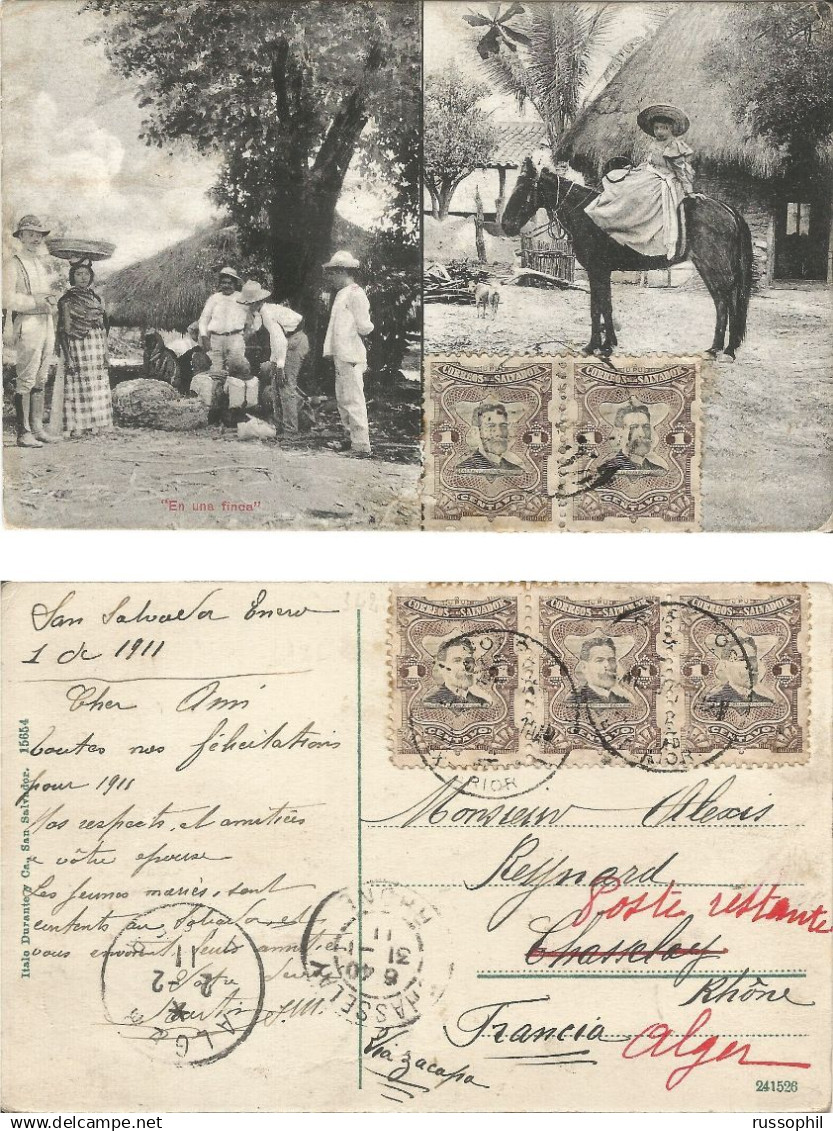 CORREOS DEL SALVADOR
1 1
CENTAVO
CORREOS DEL SALVADOR
1 1
CENTAVO
"En una finca"
San Salvador Enero
1 de 1911
Cher Ami
toutes nos félicitations
pour 1911
Nos respects, et amitiés
a vôtre epouse
Les jeunes mariés, sont
contents au Salvador et
vous envoient leurs amitiés
Votre
Italo Durante y Ca., San Salvador. 15654
CORREOS DEL SALVADOR
1 1
CENTAVO
CORREOS DEL SALVADOR
1 1
CENTAVO
CORREOS DEL SALVADOR
1 1
CENTAVO
Monsieur Alexis
Reynard
Poste restante
Chasselay
Rhône
Francia Alger
Via Zacapa
CHASSELAY
RHONE
6 40
31 -1
11
ALGER
2 -2
11
241526
russophil